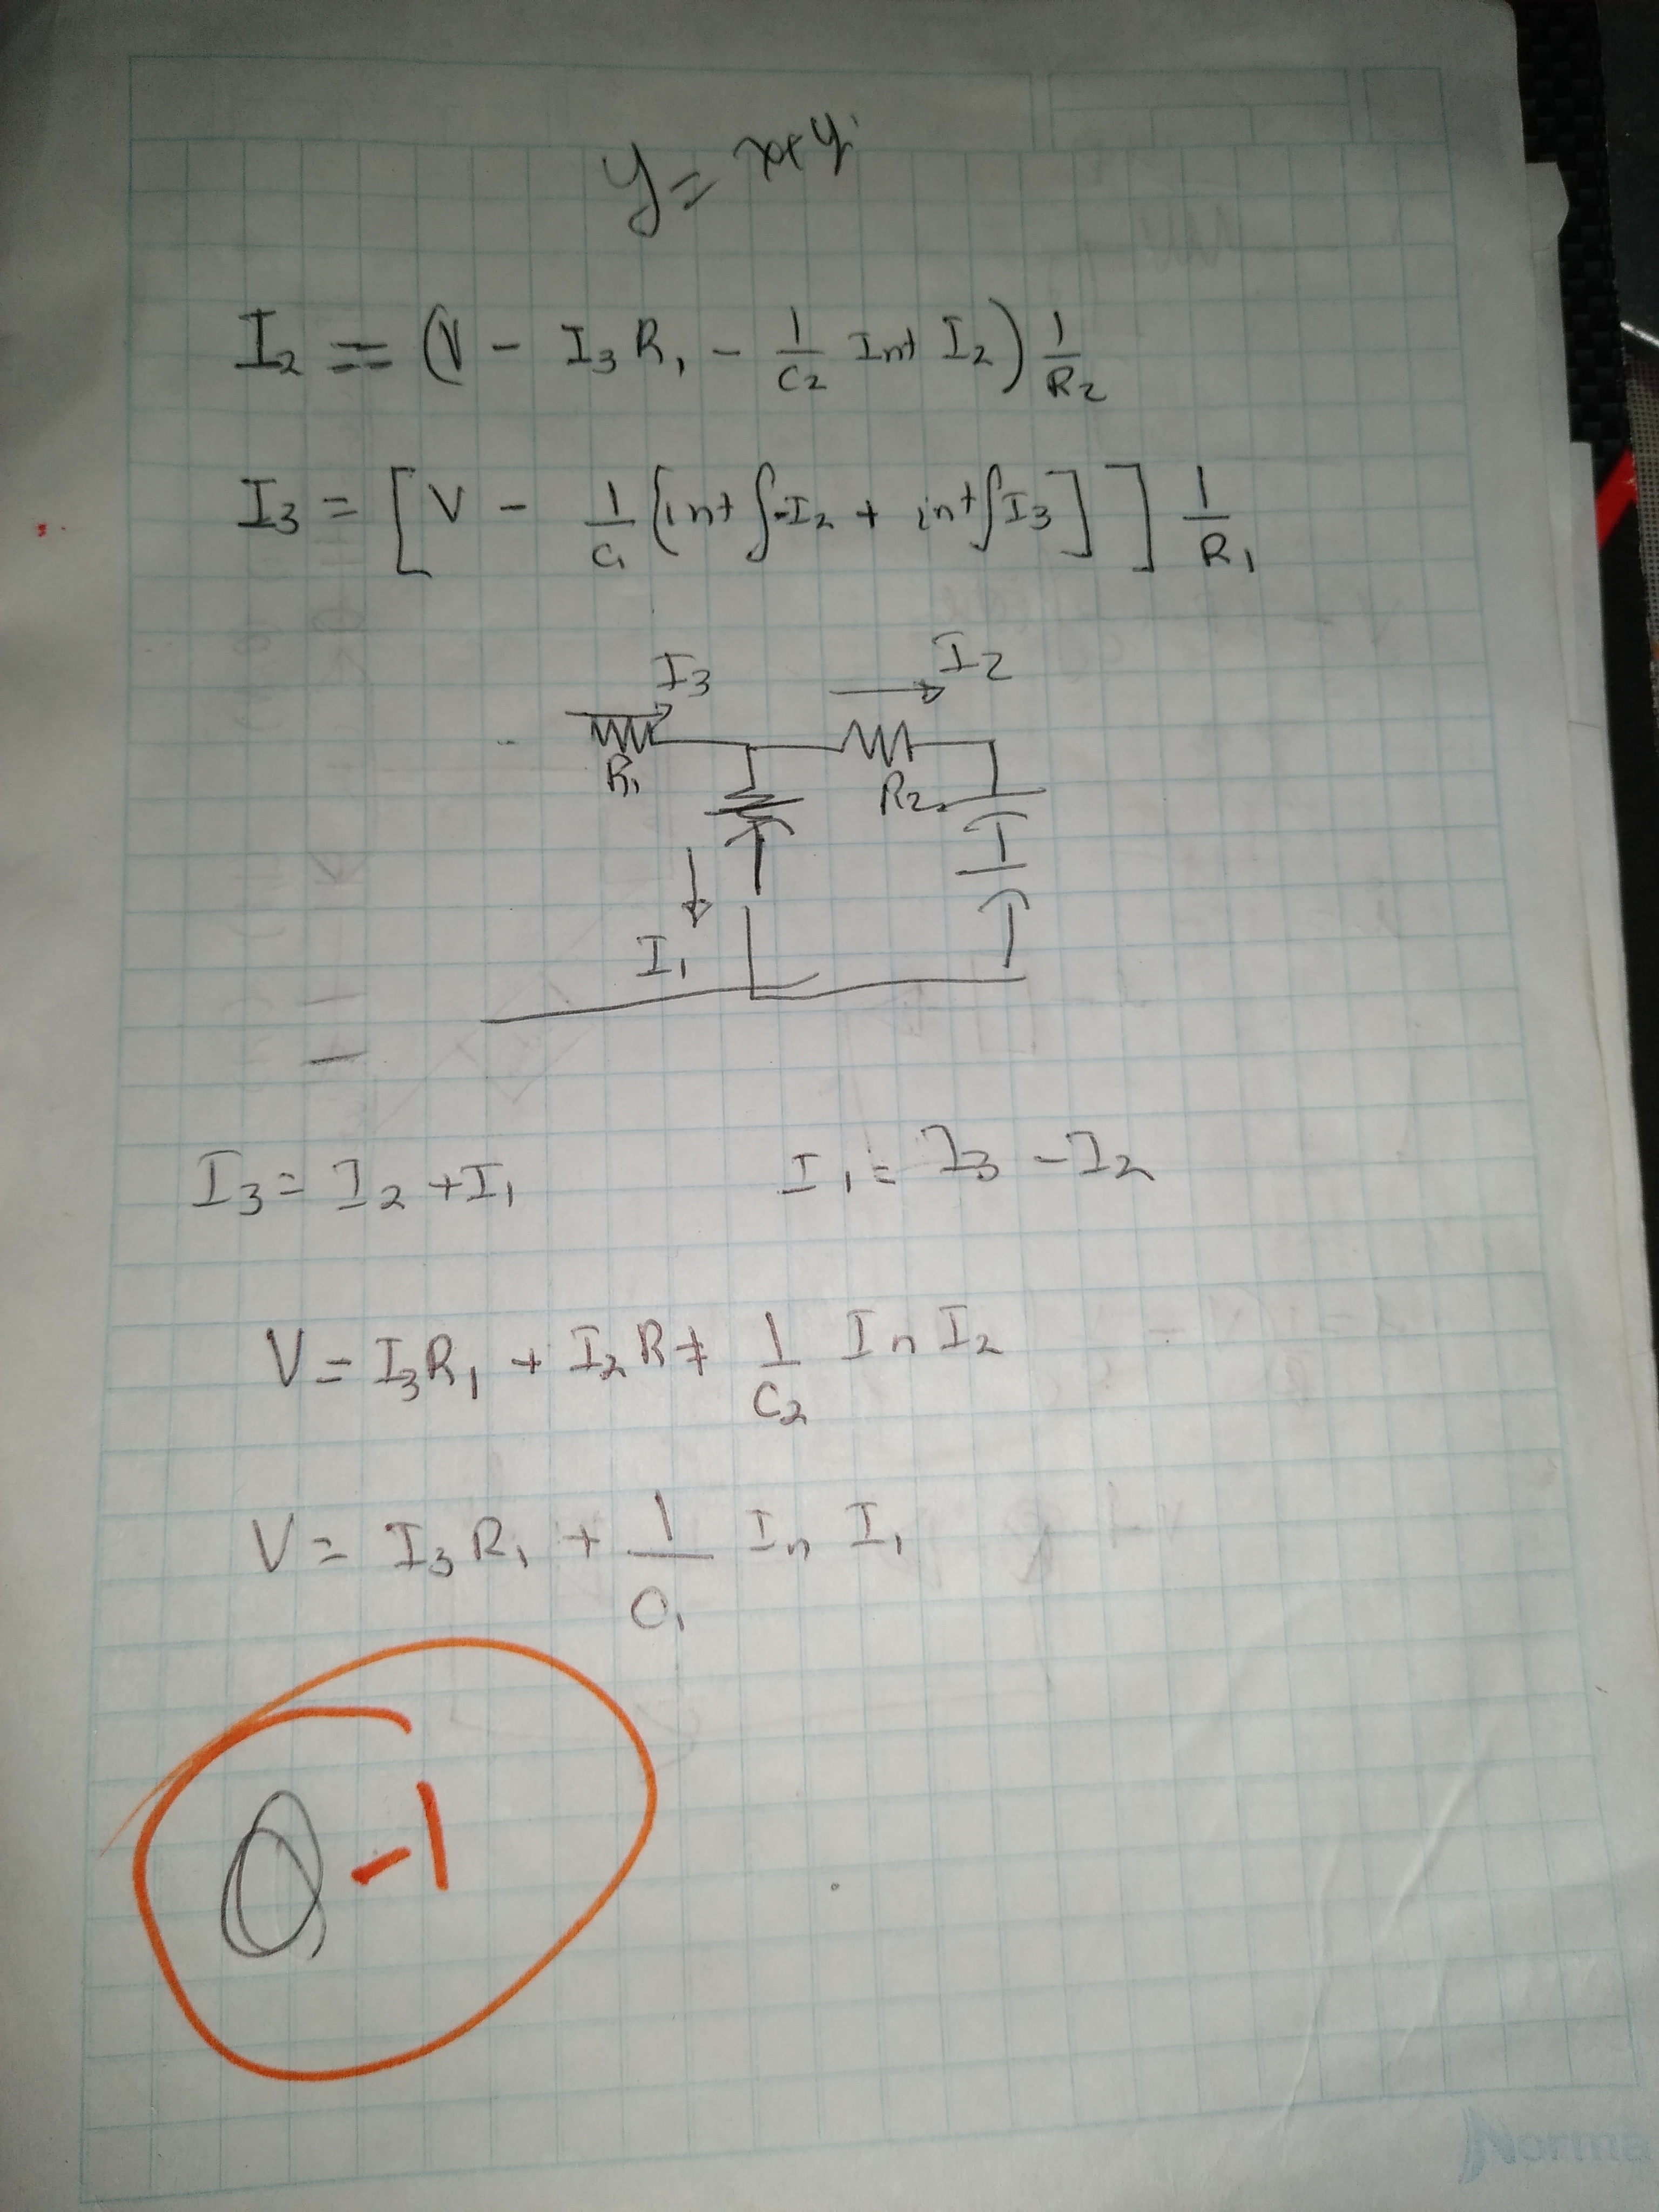 y = x+y
I₂ == (V - I₃ R₁ - 1/C₂ Int I₂) 1/R₂
I₃ = [V - 1/C₁ [int ∫-I₂ + int ∫I₃]] 1/R₁
I₃ I₂
R₁ R₂
I₁
I₃ = I₂ + I₁ I₁ = I₃ - I₂
V = I₃R₁ + I₂R + 1/C₂ In I₂
V = I₃R₁ + 1/C₁ In I₁
-1
Norma